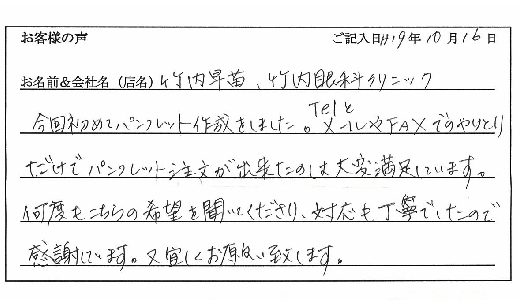 お客様の声 ご記入日H19年10月16日
お名前&会社名(店名) 竹内早苗、竹内眼科クリニック
今回初めてパンフレット作成をしました。Telとメールや FAXでのやりとり
だけでパンフレット注文が出来たのは大変満足しています。
何度もこちらの希望を聞いてくださり、対応も丁寧でしたので
感謝しています。又宜しくお願い致します。